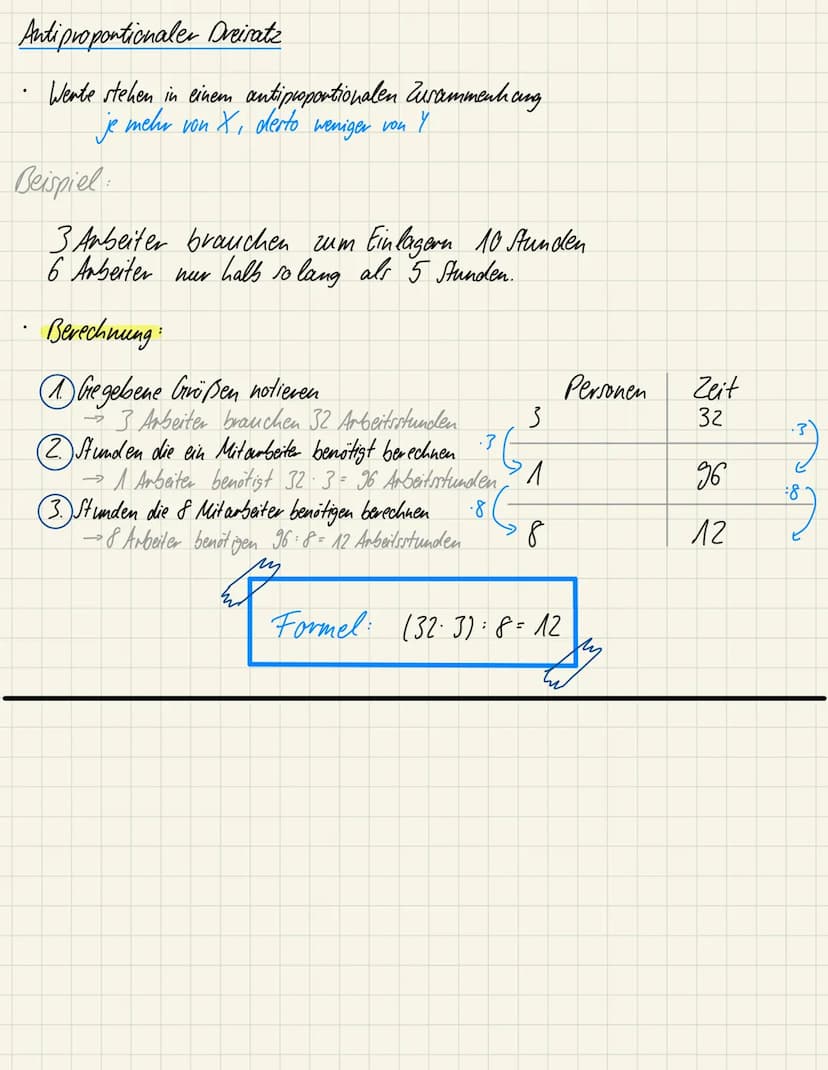 Antiproportionaler Dreisatz
· Werte stehen in einem antiproportionalen Zusammenhang
je mehr von X, desto weniger von Y
Beispiel:
3 Arbeiter brauchen zum Einlagern 10 Stunden
6 Arbeiter nur halb so lang als 5 Stunden.
· Berechnung:
1. Gegebene Größen notieren
→ 3 Arbeiter brauchen 32 Arbeitsstunden
2. Stunden die ein Mitarbeiter benötigt berechnen
→ 1 Arbeiter benötigt 32 · 3 = 96 Arbeitsstunden
3. Stunden die 8 Mitarbeiter benötigen berechnen
→ 8 Arbeiter benötigen 96 : 8 = 12 Arbeitsstunden
Personen Zeit
3 32
·3 ·3
1 96
·8 :8
8 12
Formel: (32 · 3) : 8 = 12